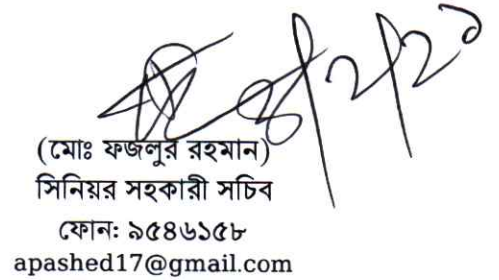 (মোঃ ফজলুর রহমান)
সিনিয়র সহকারী সচিব
ফোন: ৯৫৪৬১৫৮
apashed17@gmail.com